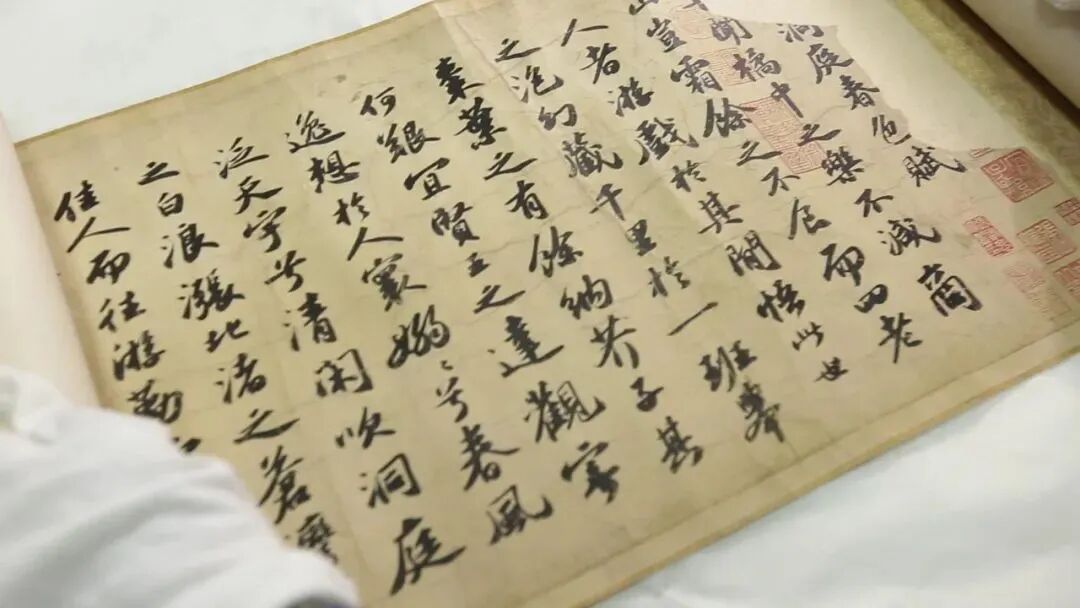 洞庭春色賦
吾聞橘中之樂不減商
山豈霜餘之不食而四老
人者游戲於其間悟此世
之泡幻藏千里於一班舉
棗葉之有餘納芥子其
何艱宜賢王之達觀寄
逸想於人寰嫋〻兮春風
泛天宇兮清閑吹洞庭
之白浪漲北渚之蒼灣
佳人而往游勤